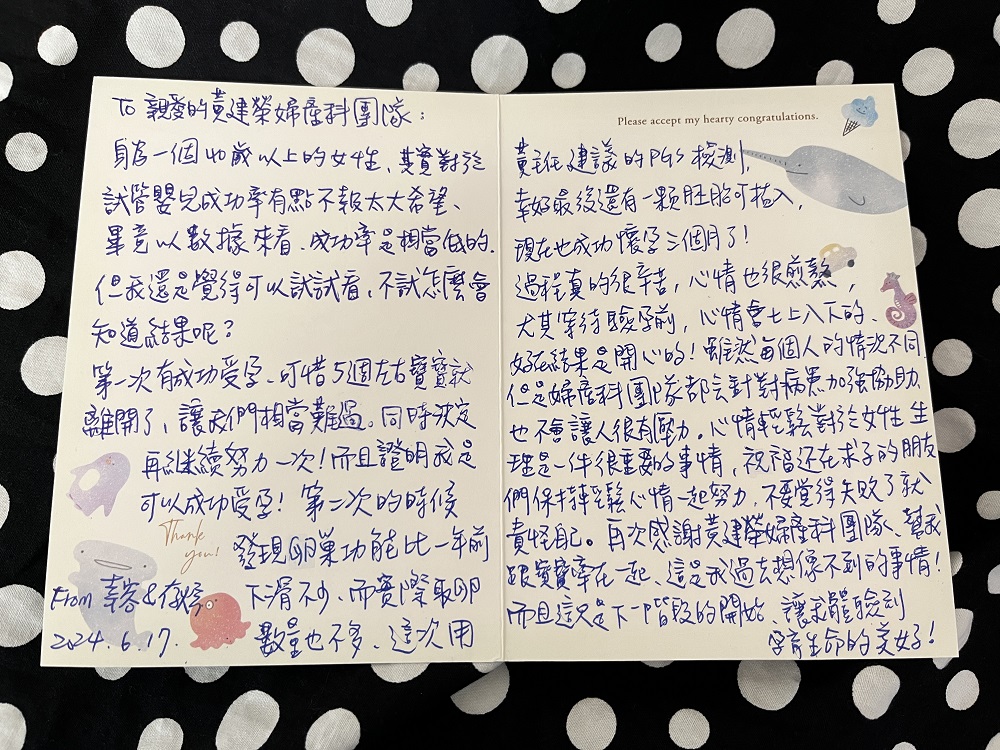 To 親愛的黃建榮婦產科團隊：
身為一個40歲以上的女性、其實對於
試管嬰兒成功率有點不報太大希望、
畢竟以數據來看、成功率是相當低的.
但我還是覺得可以試試看、不試怎麼會
知道結果呢？
第一次有成功受孕、可惜5週左右寶寶就
離開了、讓我們相當難過。同時決定
再繼續努力一次！而且證明我是
可以成功受孕！第二次的時候
Thank you!
發現卵巢功能比一年前
下滑不少、而實際取卵
數量也不多、這次用
From
2024.6.17.
Please accept my hearty congratulations.
黃主任建議的PGS檢測,
幸好最後還有一顆胚胎可植入,
現在也成功懷孕三個月了！
過程真的很辛苦，心情也很煎熬，
尤其等待驗孕前，心情會七上八下的、
好在結果是開心的！雖然每個人的情況不同
但是婦產科團隊都會針對病患加強協助、
也不會讓人很有壓力。心情輕鬆對於女性生
理是一件很重要的事情，祝福還在求子的朋友
們保持輕鬆心情一起努力、不要覺得失敗了就
責怪自己。再次感謝黃建榮婦產科團隊、幫我
跟寶寶牽在一起、這是我過去想像不到的事情！
而且這只是下一階段的開始、讓我體驗到
孕育生命的美好！